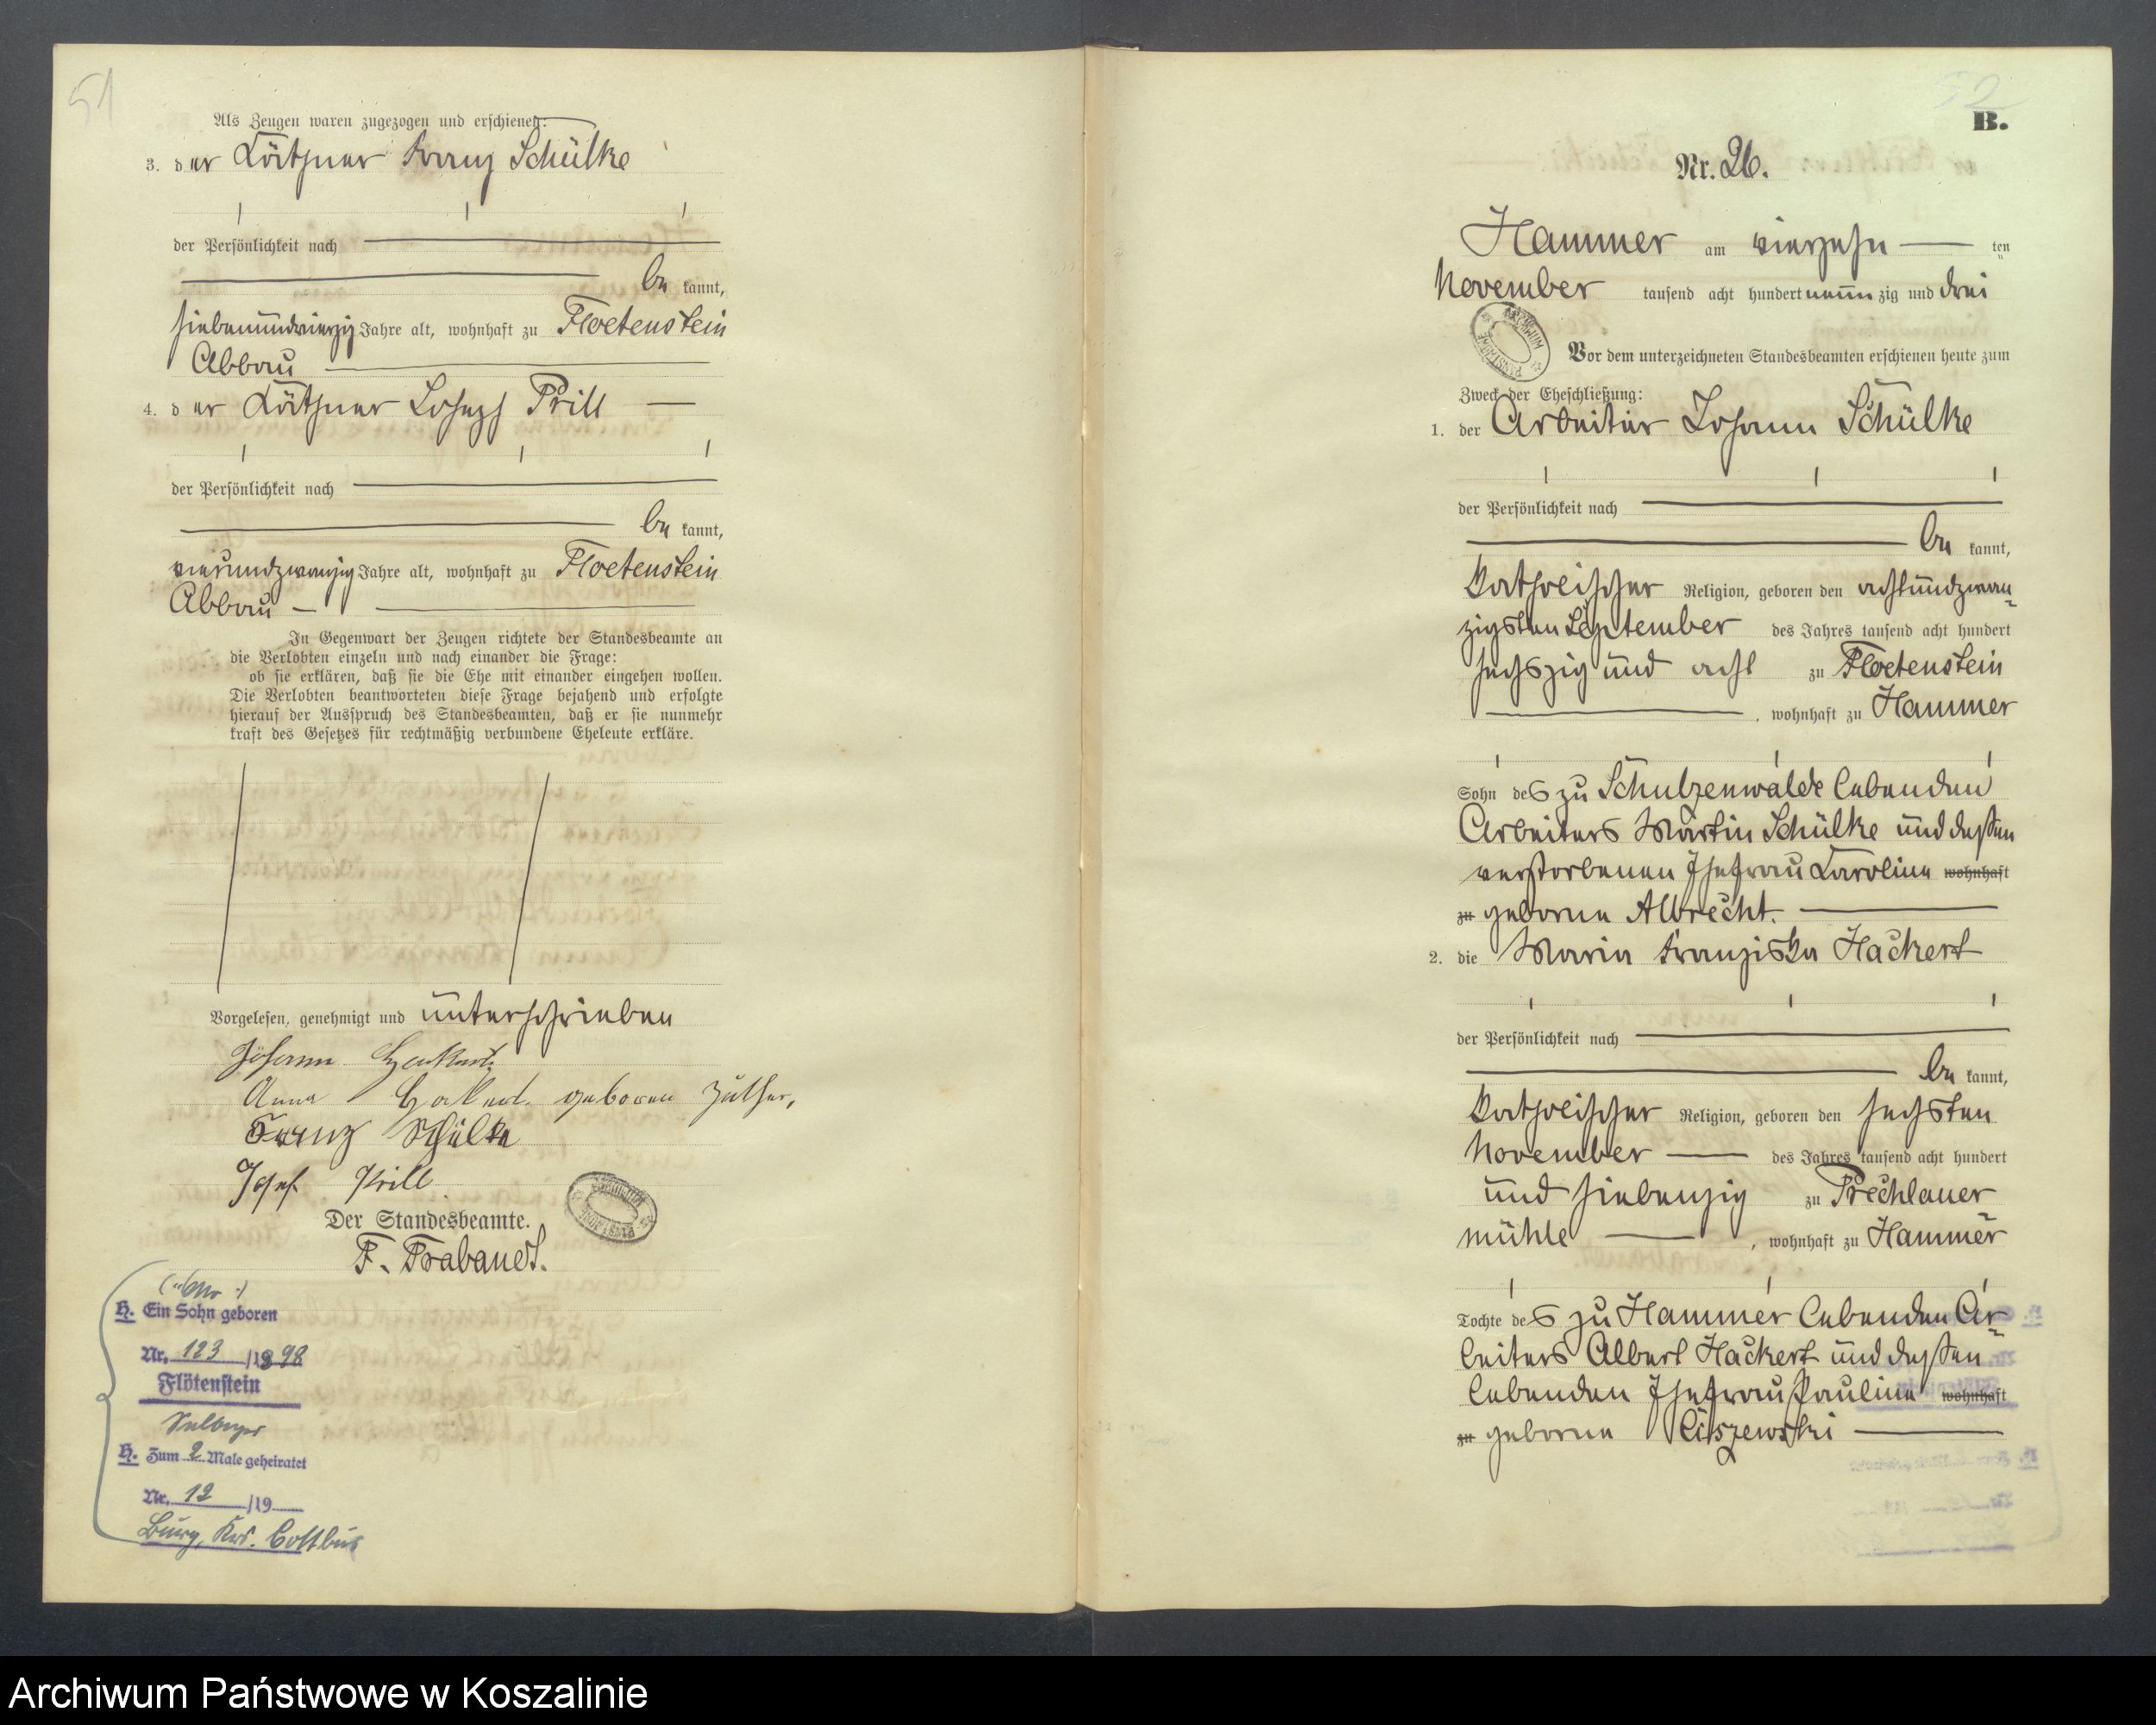 51
Als Zeugen waren zugezogen und erschienen:
3. der Käthner Franz Schülke
der Persönlichkeit nach
be kannt,
siebenundvierzig Jahre alt, wohnhaft zu Floetenstein
Abbau
4. der Käthner Joseph Prill
der Persönlichkeit nach
be kannt,
vierundzwanzig Jahre alt, wohnhaft zu Floetenstein
Abbau
In Gegenwart der Zeugen richtete der Standesbeamte an
die Verlobten einzeln und nach einander die Frage:
ob sie erklären, daß sie die Ehe mit einander eingehen wollen.
Die Verlobten beantworteten diese Frage bejahend und erfolgte
hierauf der Ausspruch des Standesbeamten, daß er sie nunmehr
kraft des Gesetzes für rechtmäßig verbundene Eheleute erkläre.
Vorgelesen, genehmigt und unterschrieben
Johann
Anna geboren
Franz Schülke
Josef Prill
Der Standesbeamte.
F. Trabandt.
H. Ein Sohn geboren
Nr. 123 /1898
Flötenstein
Selbiger
H. Zum 2 Male geheiratet
Nr. 12 /19
Burg, Krs. Cottbus
52
B.
Nr. 26.
Hammer am vierzehn ten
November tausend acht hundert neunzig und drei
Vor dem unterzeichneten Standesbeamten erschienen heute zum
Zweck der Eheschließung:
1. der Arbeiter Johann Schülke
der Persönlichkeit nach
be kannt,
katholischer Religion, geboren den achtundzwan-
zigsten September des Jahres tausend acht hundert
sechszig und acht zu Floetenstein
, wohnhaft zu Hammer
Sohn des zu Schulzenwalde lebenden
Arbeiters Martin Schülke und dessen
verstorbenen Ehefrau Karoline wohnhaft
zu geborne Albrecht.
2. die Maria Franziska Hackert
der Persönlichkeit nach
be kannt,
katholischer Religion, geboren den sechsten
November des Jahres tausend acht hundert
und siebenzig zu Prechlauer
mühle , wohnhaft zu Hammer
Tochte des zu Hammer lebenden Ar-
beiters Albert Hackert und dessen
lebenden Ehefrau Pauline wohnhaft
zu geborne Ciszewski
Archiwum Państwowe w Koszalinie